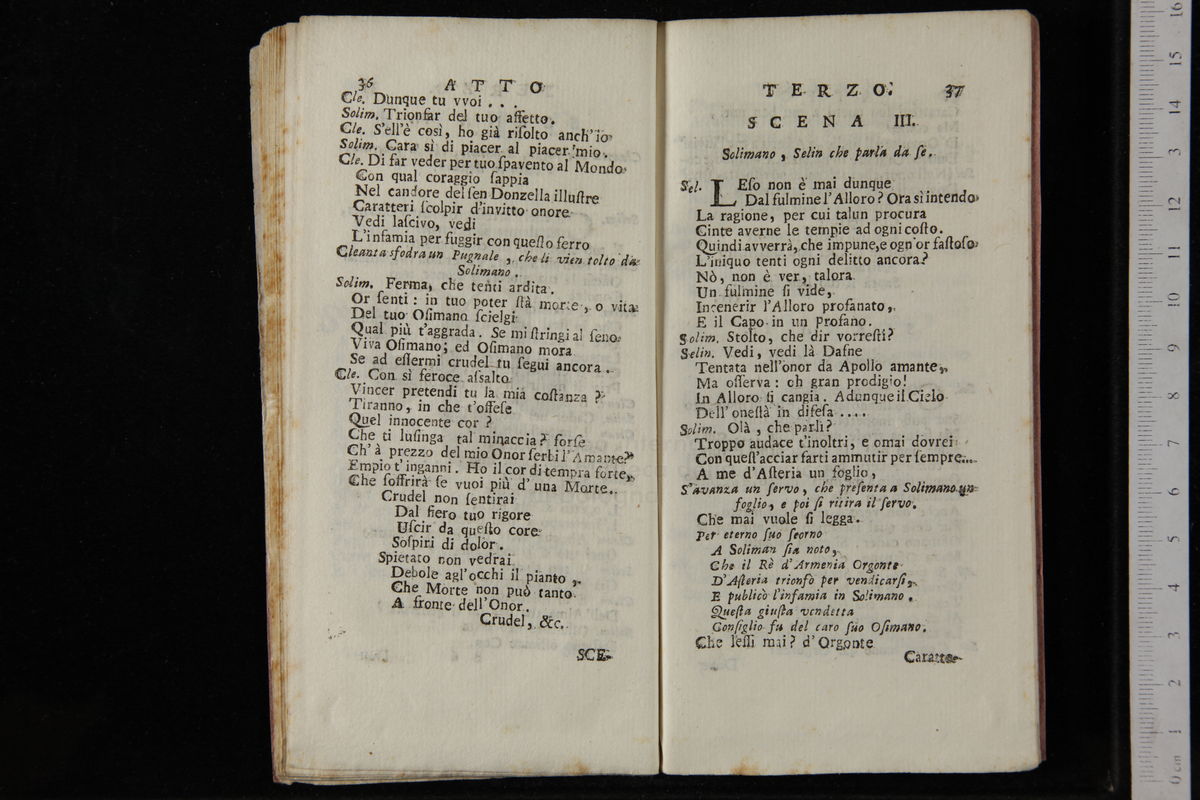 36 ATTO
Cle. Dunque tu vvoi . . .
Solim. Trionfar del tuo affetto.
Cle. S'ell'è così, ho già riſolto anch'io
Solim. Cara sì di piacer al piacer mio.
Cle. Di far veder per tuo ſpavento al Mondo
Con qual coraggio ſappia
Nel candore del ſen Donzella illuſtre
Caratteri ſcolpir d'invitto onore
Vedi laſcivo, vedi
L'infamia per fuggir con queſto ferro
Cleanta sfodra un Pugnale, che li vien tolto da
Solimano.
Solim. Ferma, che tenti ardita.
Or ſenti : in tuo poter ſtà morte, o vita
Del tuo Oſimano ſcielgi
Qual più t'aggrada. Se mi ſtringi al ſeno
Viva Oſimano; ed Oſimano mora
Se ad eſſermi crudel tu ſegui ancora.
Cle. Con sì feroce aſsalto
Vincer pretendi tu la mia coſtanza ?
Tiranno, in che t'offeſe
Quel innocente cor ?
Che ti luſinga tal minaccia? forſe
Ch'à prezzo del mio Onor ſerbi l'Amante?
Empio t'inganni. Ho il cor di tempra forte,
Che ſoffrirà ſe vuoi più d'una Morte.
Crudel non ſentirai
Dal fiero tuo rigore
Uſcir da queſto core
Soſpiri di dolor.
Spietato non vedrai
Debole agl'occhi il pianto,
Che Morte non può tanto
A fronte dell'Onor.
Crudel, &c.
SCE-
TERZO. 37
SCENA III.
Solimano, Selin che parla da ſe.
Sel. LEſo non è mai dunque
Dal fulmine l'Alloro? Ora sì intendo
La ragione, per cui talun procura
Cinte averne le tempie ad ogni coſto.
Quindi avverrà, che impune, e ogn'or faſtoſo
L'iniquo tenti ogni delitto ancora?
Nò, non è ver, talora
Un fulmine ſi vide,
Incenerir l'Alloro profanato,
E il Capo in un Profano.
Solim. Stolto, che dir vorreſti?
Selin. Vedi, vedi là Dafne
Tentata nell'onor da Apollo amante,
Ma oſſerva : oh gran prodigio!
In Alloro ſi cangia. Adunque il Cielo
Dell'oneſtà in difeſa ....
Solim. Olà, che parli?
Troppo audace t'inoltri, e omai dovrei
Con queſt'acciar farti ammutir per ſempre...
A me d'Aſteria un foglio,
S'avanza un ſervo, che preſenta a Solimano un
foglio, e poi ſi ritira il ſervo.
Che mai vuole ſi legga.
Per eterno ſuo ſcorno
A Soliman ſia noto,
Che il Rè d'Armenia Orgonte
D'Aſteria trionfò per vendicarſi,
E publicò l'infamia in Solimano.
Queſta giuſta vendetta
Conſiglio fu del caro ſuo Oſimano.
Che leſſi mai? d'Orgonte
Caratte-
0 cm 1 2 3 4 5 6 7 8 9 10 11 12 13 14 15 16